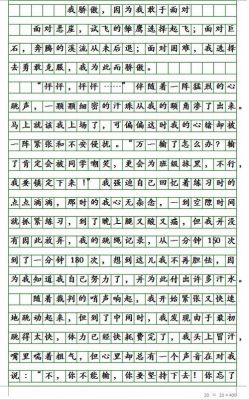 我骄傲，因为我敢于面对
面对悬崖，试飞的雏鹰选择起飞；面对巨
石，奔腾的溪流从未后退；面对困难，我选择
去勇敢克服，我为此而骄傲。
“怦怦，怦怦……”伴随着一阵猛烈的心
跳声，一颗颗细密的汗珠从我的额角渗了出来。
马上就该我上场了，可偏偏这时我的心绪却被
一阵紧张和不安侵扰。“万一输了怎么办？输
了肯定会被同学嘲笑，更会为班级抹黑，不行，
我要镇定下来！”我强迫自己回忆着练习时的
点点滴滴，那时的我心无杂念，一到空闲时间
就抓紧练习，到了晚上腿又酸又痛，但我并没
有因此放弃，我的跳绳记录，从一分钟 150 次
到了一分钟 180 次，想到这儿我不再胆怯，因
为我知道我自己努力了，并为此付出许多汗水。
随着裁判的哨声响起，我开始紧张又快速
地跳动起来，但到了中间时，我发现由于最初
跳得太快，体力已经快耗费完了，我头上冒汗，
嘴里喘着粗气，但心里却总有一个声音在对我
说：“不，你不能输，你要坚持下去！你忘了
20 × 20 = 400